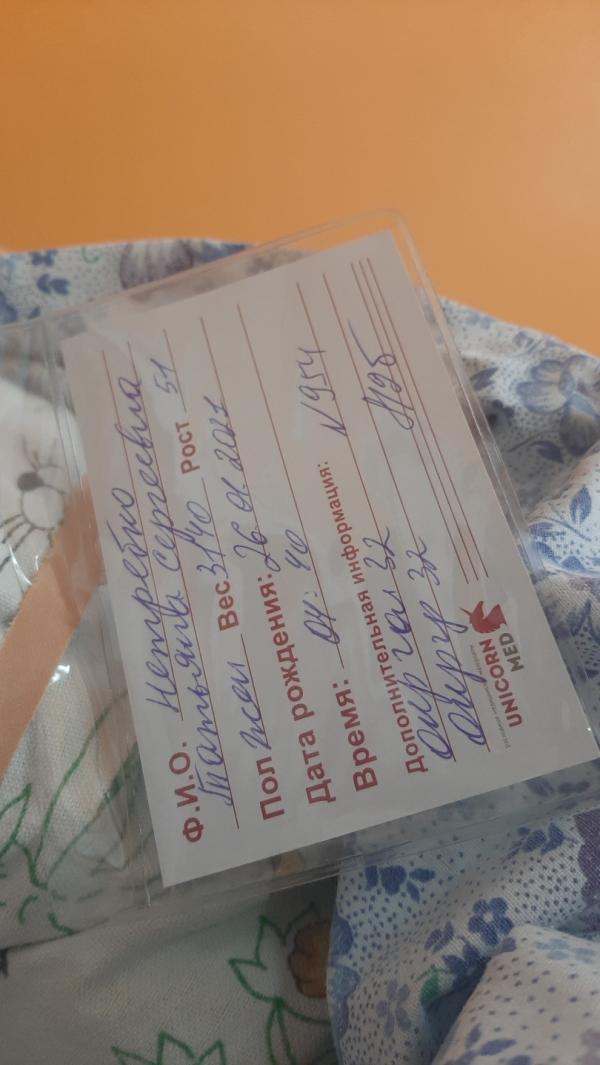 Ф.И.О. Нетребко
Татьяна Сергеевна
Пол жен Вес 3140 Рост 51
Дата рождения: 26.01.2021
Время: 04:40
Дополнительная информация: N954
окр гол 32 N25
окргр 32
UNICORN
MED